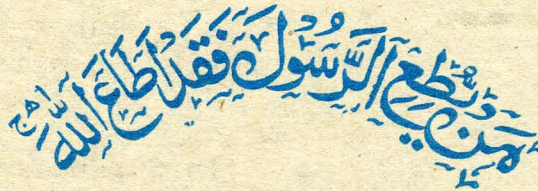 مَنْ يُّطِعِ الرَّسُوْلَ فَقَدْ اَطَاعَ اللّٰهَ